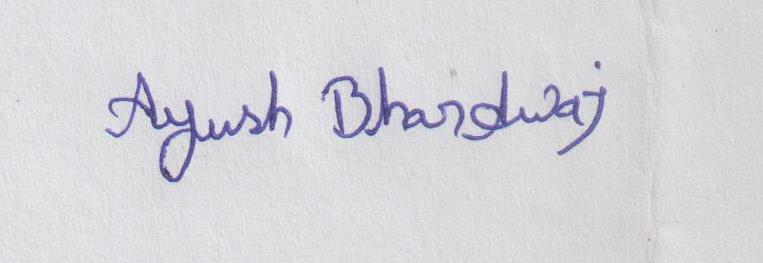 Ayush Bhardwaj